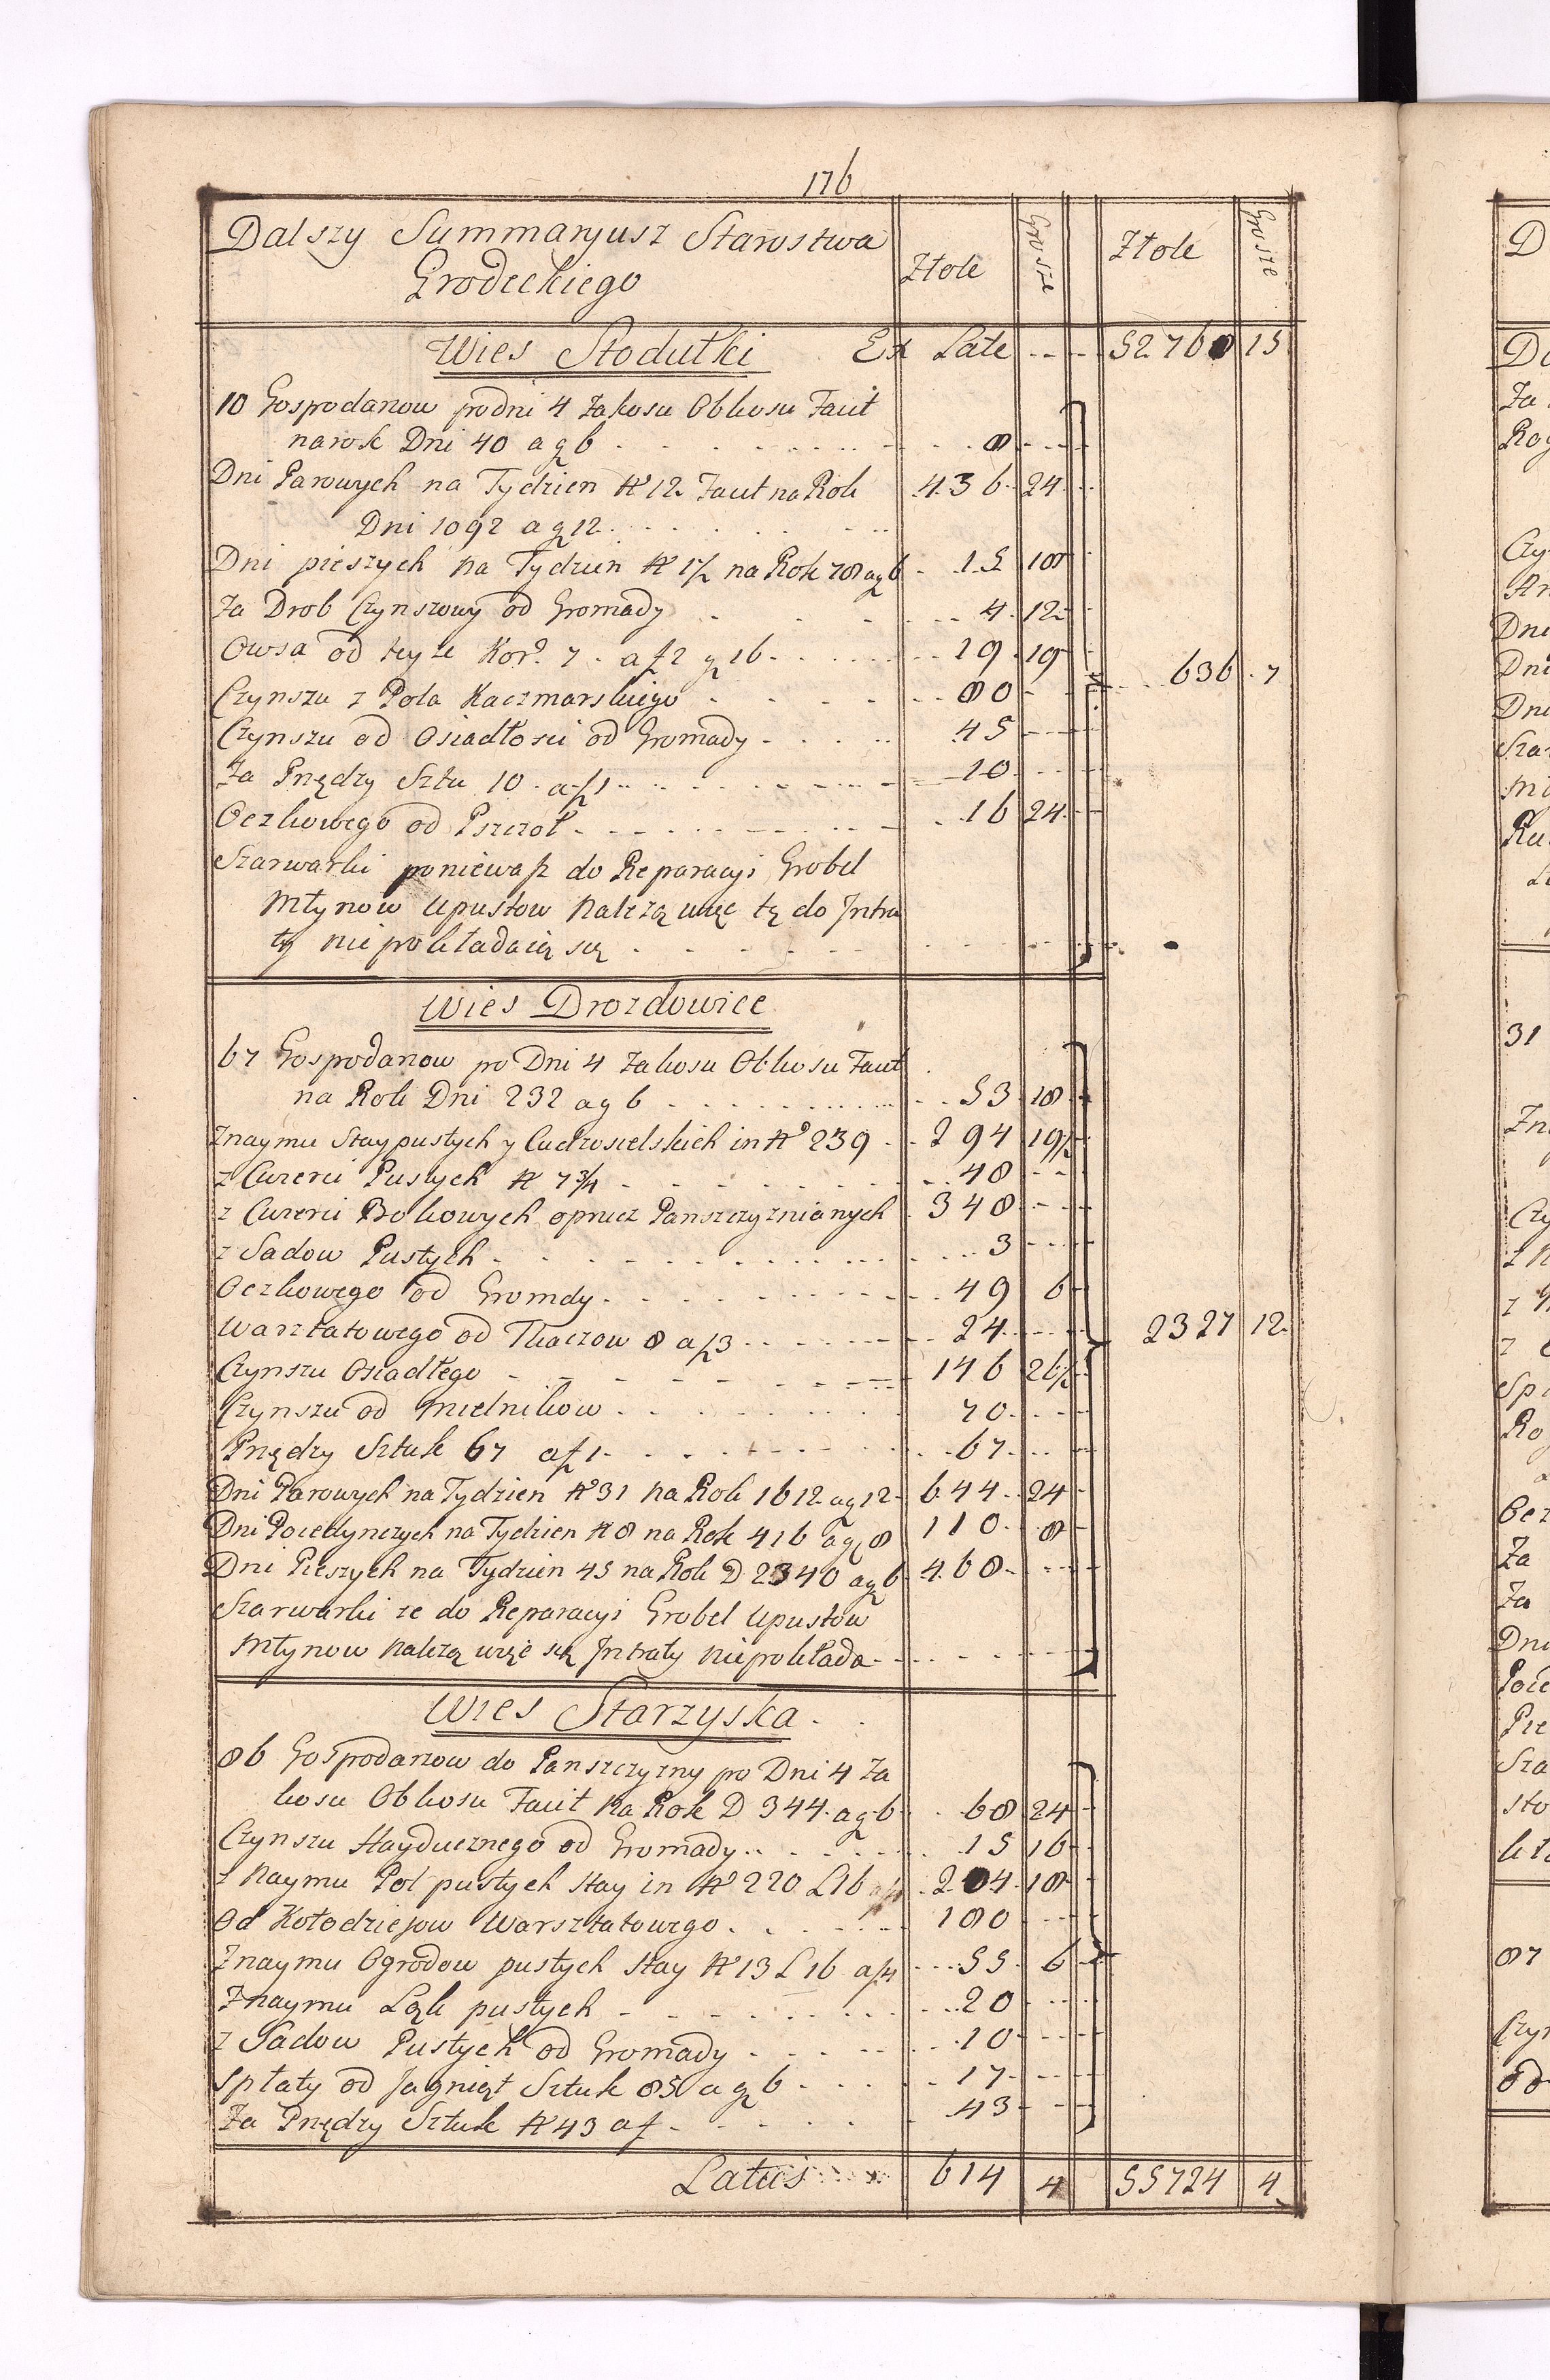 176
Dalszy Summaryusz Starostwa
Grodeckiego
Złote Grosze Złote Grosze
Wies Stodułki Ex Late 52760 15
10 Gospodarzow po dni 4 Zakosu Obkosu Facit
na rok Dni 40 a g 6 8
Dni Parowych na Tydzien N 12 Facit na Rok 436 24
Dni 1092 a g 12
Dni pieszych na Tydzien N 1½ na Rok 78 a g 6 15 18
Za Drob Czynszowy od Gromady 4 12
Owsa od teyze Kor. 7 a f 2 g 16 19 19
Czynszu z Pola Kaczmarskiego 80
636 7
Czynszu od Osiadłosci od Gromady 45
Za Przędzy Sztu 10 a f 1 10
Oczkowego od Pszczoł 16 24
Szarwarki poniewasz do Reparacyi Grobel
Młynow Upustow nalezą więc tę do Intra
ty nie pokładaią się
Wies Drozdowice
67 Gospodarzow po Dni 4 Zakosu Obkosu Facit
na Rok Dni 232 a g 6 53 18
Znaymu Stay pustych y Cudzosielskich in N 239 294 19½
z Cwierci Pustych N 7¾ 48
z Cwierci Bokowych oprucz Panszczyznianych 348
z Sadow Pustych 3
Oczkowego od Gromdy 49 6
Warztatowego od Tkaczow 8 a f 3 24
2327 12
Czynszu Osiadłego 146 26½
Czynszu od Mielnikow 70
Przędzy Sztuk 67 a f 1 67
Dni Parowych na Tydzien N 31 na Rok 1612 a g 12 644 24
Dni Poiedynczych na Tydzien N 8 na Rok 416 a g 8 110 8
Dni Pieszych na Tydzien 45 na Rok D 2340 a g 6 468
Szarwarki ze do Reparacyi Grobel Upustow
Młynow nalezą więc się Intraty niepokłada
Wies Starzyska
86 Gospodarzow do Panszczyzny po Dni 4 Za
kosu Obkosu Facit na Rok D 344 a g 6 68 24
Czynszu Hayducznego od Gromady 15 16
z Naymu Pol pustych stay in N 220 L 16 204 18
Od Kołodziejow Warsztatowego 180
Znaymu Ogrodow pustych stay N 13 L 16 a f 4 55 6
Znaymu Łąk pustych 20
z Sadow Pustych od Gromady 10
Spłaty od Jagniąt Sztuk 85 a g 6 17
Za Przędzy Sztuk N 43 a f 43
Latus 614 4 55724 4